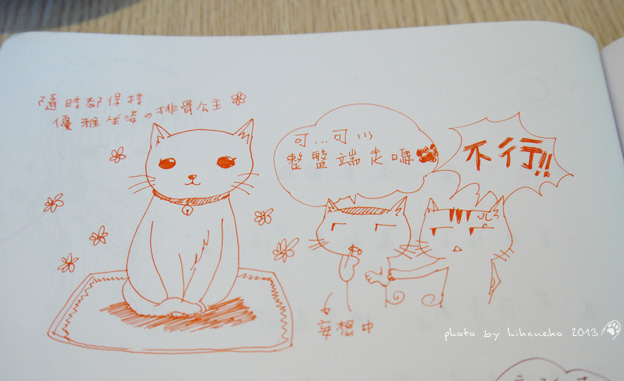 隨時都保持
優雅坐姿の排骨公主
可…可以
整盤端走嗎
不行!!
妄想中
photo by hikaneko 2013/